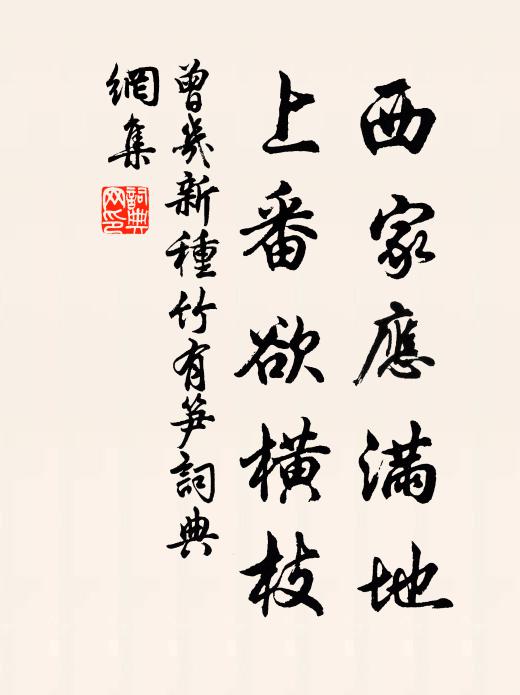 西家應滿地
上番欲橫枝
曾幾新種竹有笋詞典
網集
詞典網印